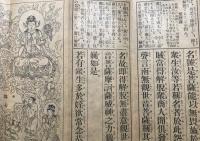 名匪是菩薩能以無畏施於
衆生汝等若稱名者於此怨
賊當得解脱衆商人聞俱發
聲言南無觀世音菩薩稱其
名故即得解脱無盡意觀世
音菩薩摩訶薩威神之力巍
巍如是
若有衆生多於婬欲常念恭